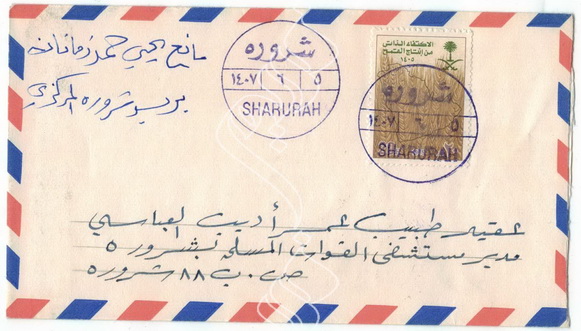 مانع يحيى حمد
بريد شروره المركزي
شروره
١٤٠٧ ٦ ٥
SHARURAH
الاكتفاء الذاتي
من إنتاج القمح
١٤٠٥
شروره
١٤٠٧ ٦ ٥
SHARURAH
عقيد طبيب عمر أديب العباسي
مدير مستشفى القوات المسلحه بشروره
ص . ب ٨٨ شروره